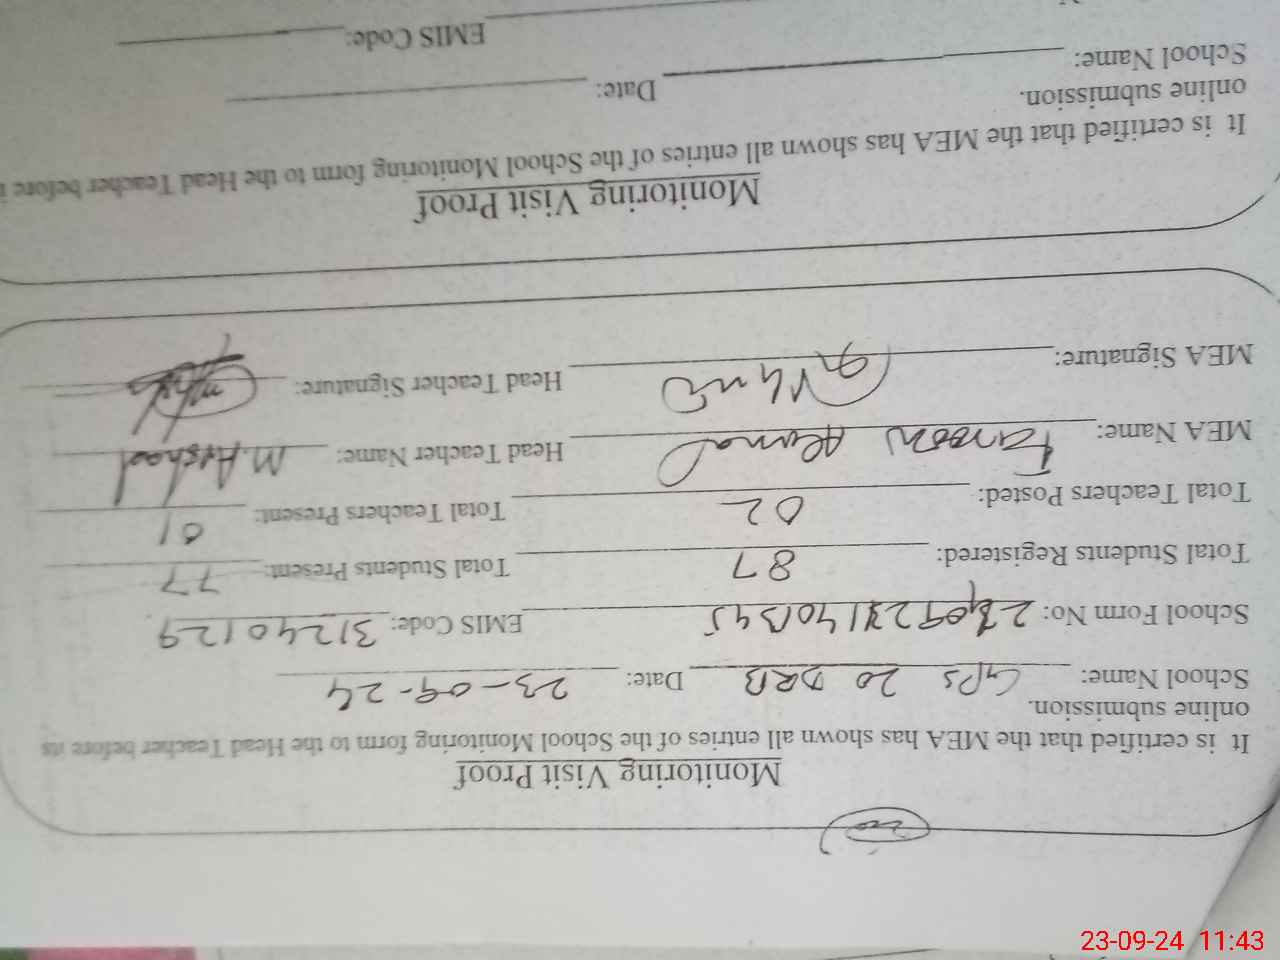 Monitoring Visit Proof
It is certified that the MEA has shown all entries of the School Monitoring form to the Head Teacher before its
online submission.
School Name: GPS 20 DRB Date: 23-09-24
School Form No: EMIS Code: 31240129
Total Students Registered: 87 Total Students Present: 77
Total Teachers Posted: 02 Total Teachers Present: 01
MEA Name: Farooq Head Teacher Name: M. Arshad
MEA Signature: Head Teacher Signature:
Monitoring Visit Proof
It is certified that the MEA has shown all entries of the School Monitoring form to the Head Teacher before
online submission.
School Name: Date:
EMIS Code:
23-09-24 11:43